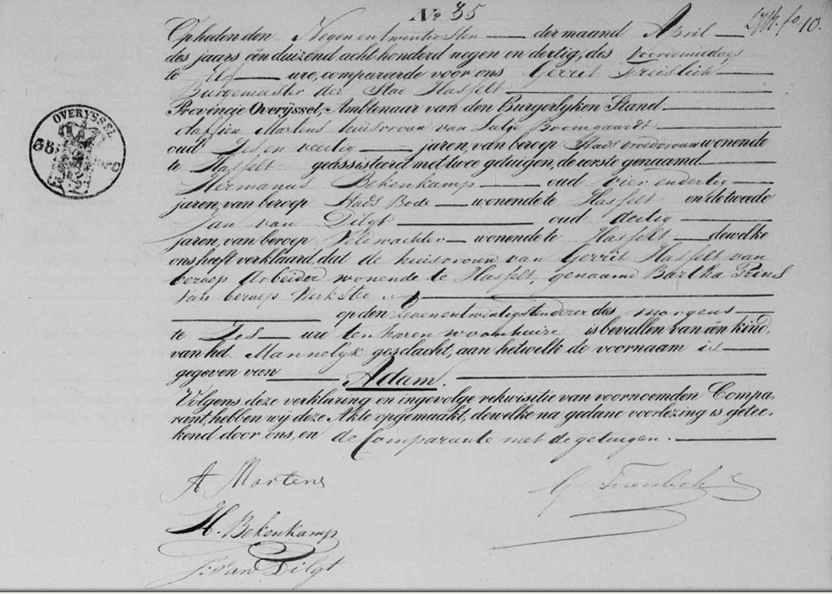 No 35
Op heden den Negen en twentigsten der maand April
des jaars één duizend acht honderd negen en dertig, des voormiddags
te Elf ure, compareerde voor ons Gerrit
Burgemeester der Stad Hasselt
Provincie Overijssel, Ambtenaar van den Burgerlyken Stand
Martens huisvrouw van Boomgaardt
oud Zes en veertig jaren, van beroep Stads vroedvrouw wonende
te Hasselt geassisteerd met twee getuigen, de eerste genaamd
Hermanus Bekenkamp oud vier en dertig
jaren, van beroep Stads Bode wonende te Hasselt en de twede
Jan van Dilgt oud dertig
jaren, van beroep Veldwachter wonende te Hasselt dewelke
ons heeft verklaard, dat de huisvrouw van Gerrit Hasselt van
beroep Arbeider wonende te Hasselt, genaamd Bartha Prins
van beroep Werkster
op den Zeven en twintigsten dezer des morgens
te Zes ure ten haren woonhuize is bevallen van één kind
van het Mannelyk geslacht, aan hetwelk de voornaam is
gegeven van Adam.
Volgens deze verklaring en ingevolge rekwisitie van voornoemden Compa-
rant, hebben wij deze Akte opgemaakt, dewelke na gedane voorlezing is getee-
kend door ons, en de Comparante met de getuigen.
A Martens
H. Bekenkamp
J. van Dilgt
OVERYSSEL
10.